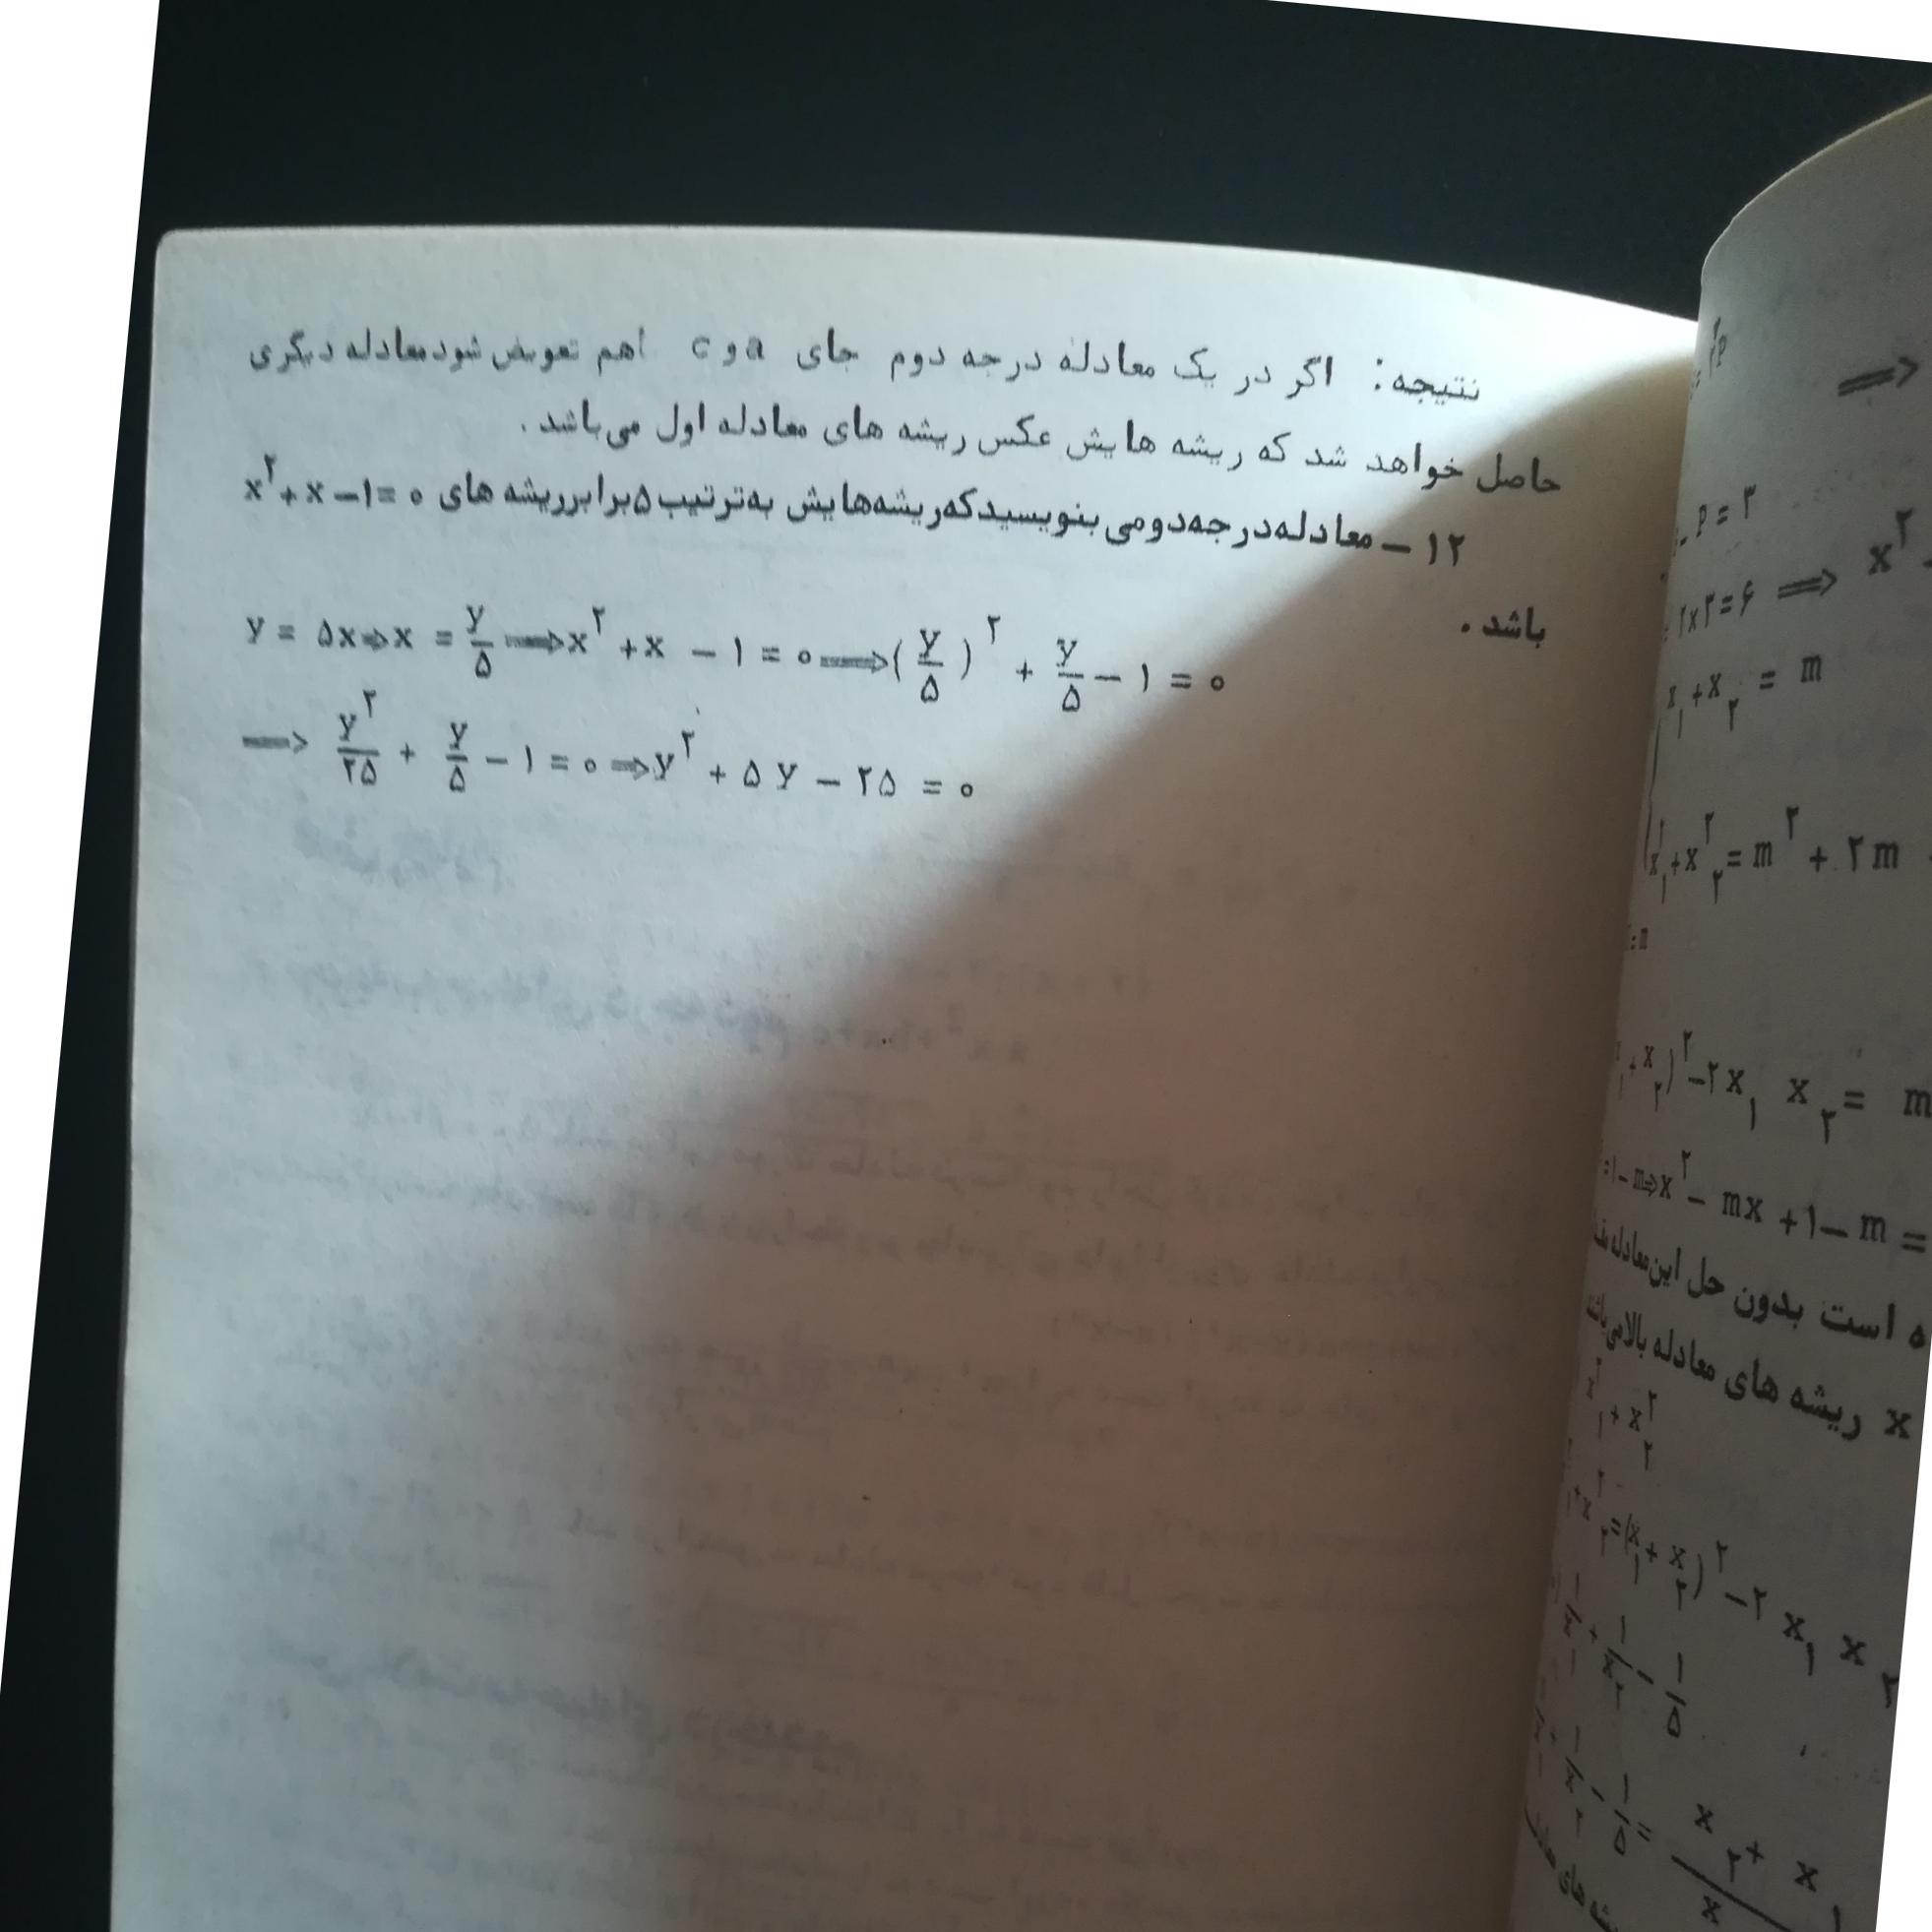 نتیجه: اگر در یک معادله درجه دوم جای a و c اهم تعویض شود معادله دیگری
حاصل خواهد شد که ریشه هایش عکس ریشه های معادله اول می‌باشد.
۱۲ – معادله درجه دومی بنویسید که ریشه‌هایش به ترتیب ۵ برابر ریشه های x²+x−۱=۰
باشد.
y = ۵x ⇒ x = y/۵ ⇒ x² + x − ۱ = ۰ ⇒ (y/۵)² + y/۵ − ۱ = ۰
⇒ y²/۲۵ + y/۵ − ۱ = ۰ ⇒ y² + ۵y − ۲۵ = ۰
⇒
P = ۳
۲×۳=۶ ⇒ x²
x₁+x₂ = m
x₁²+x₂² = m² + ۲m
x₂)² − ۲x₁ x₂ = m
۱−m ⇒ x² − mx + ۱ − m =
است بدون حل این معادله
x ریشه های معادله بالا می‌باشد
+ x₂²
x₂² = (x₁ + x₂)² − ۲ x₁ x
۱/x₂ − ۱/۵
۱/x₂ − ۱/۵ = x₂ + x